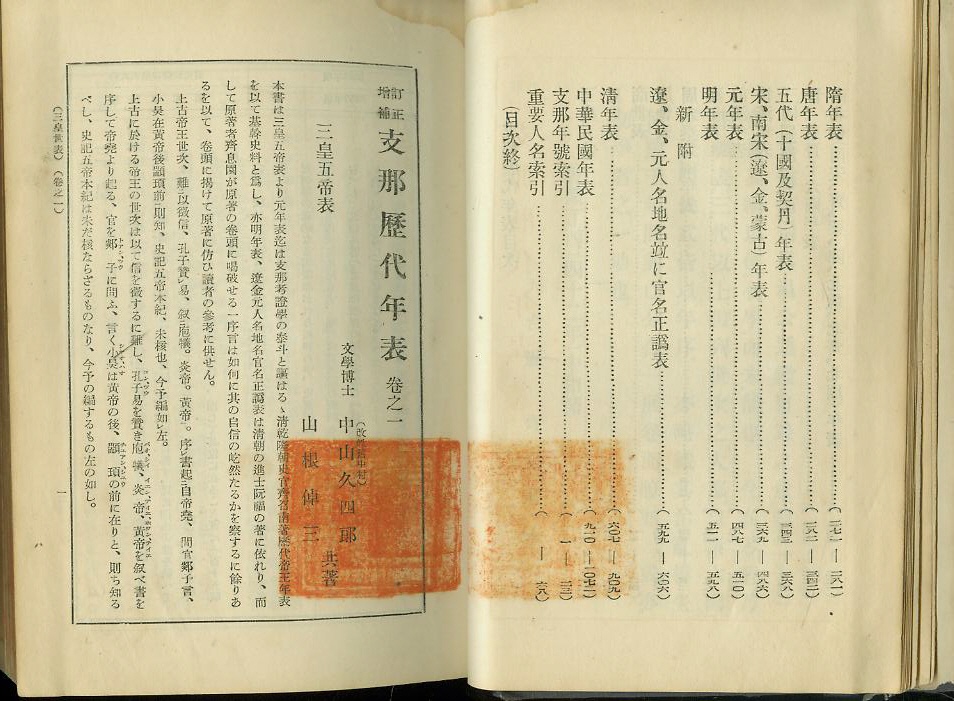 隋年表……………………(二七一—二八一)
唐年表……………………(二八二—三四二)
五代(十國及契丹)年表……………………(三四三—三六八)
宋、南宋(遼、金、蒙古)年表……………………(三六九—四八六)
元年表……………………(四八七—五一〇)
明年表……………………(五一一—五九八)
新附
遼、金、元人名地名竝に官名正譌表……………………(五九九—六〇六)
清年表……………………(六〇七—九〇九)
中華民國年表……………………(九一〇—一〇七二)
支那年號索引……………………(一—二三)
重要人名索引……………………(一—六八)
(目次終)
訂正增補 支那歷代年表 卷之一
文學博士 中山久四郎
山根倬三 共著
三皇五帝表
本書は三皇五帝表より元年表迄は支那考證學の泰斗と謳はるゝ清乾隆朝史官齊召南著歷代帝王年表
を以て基幹史料と爲し、亦明年表、遼金元人名地名官名正譌表は清朝の進士阮福の著に依れり、而
して原著者齊息園が原著の卷頭に喝破せる一序言は如何に其の自信の屹然たるかを察するに餘りあ
るを以て、卷頭に揭げて原著に仿ひ讀者の參考に供せん。
上古帝王世次、難三以徵信、孔子贊レ易、叙二庖犧。炎帝。黃帝一。序レ書起三自帝堯、問官郯子言、
小昊在黃帝後顓頊前一則知、史記五帝本紀、未核也、今予編如レ左。
上古に於ける帝王の世次は以て信を徵するに難し、孔子易を贊き庖犧、炎帝、黃帝を叙べ書を
序して帝堯より起る、官を郯子に問ふ、言く小昊は黃帝の後、顓頊の前に在りと、則ち知る
べし、史記五帝本紀は未だ核ならざるものなり、今予の編するもの左の如し。
(三皇世表)(卷之一)
一